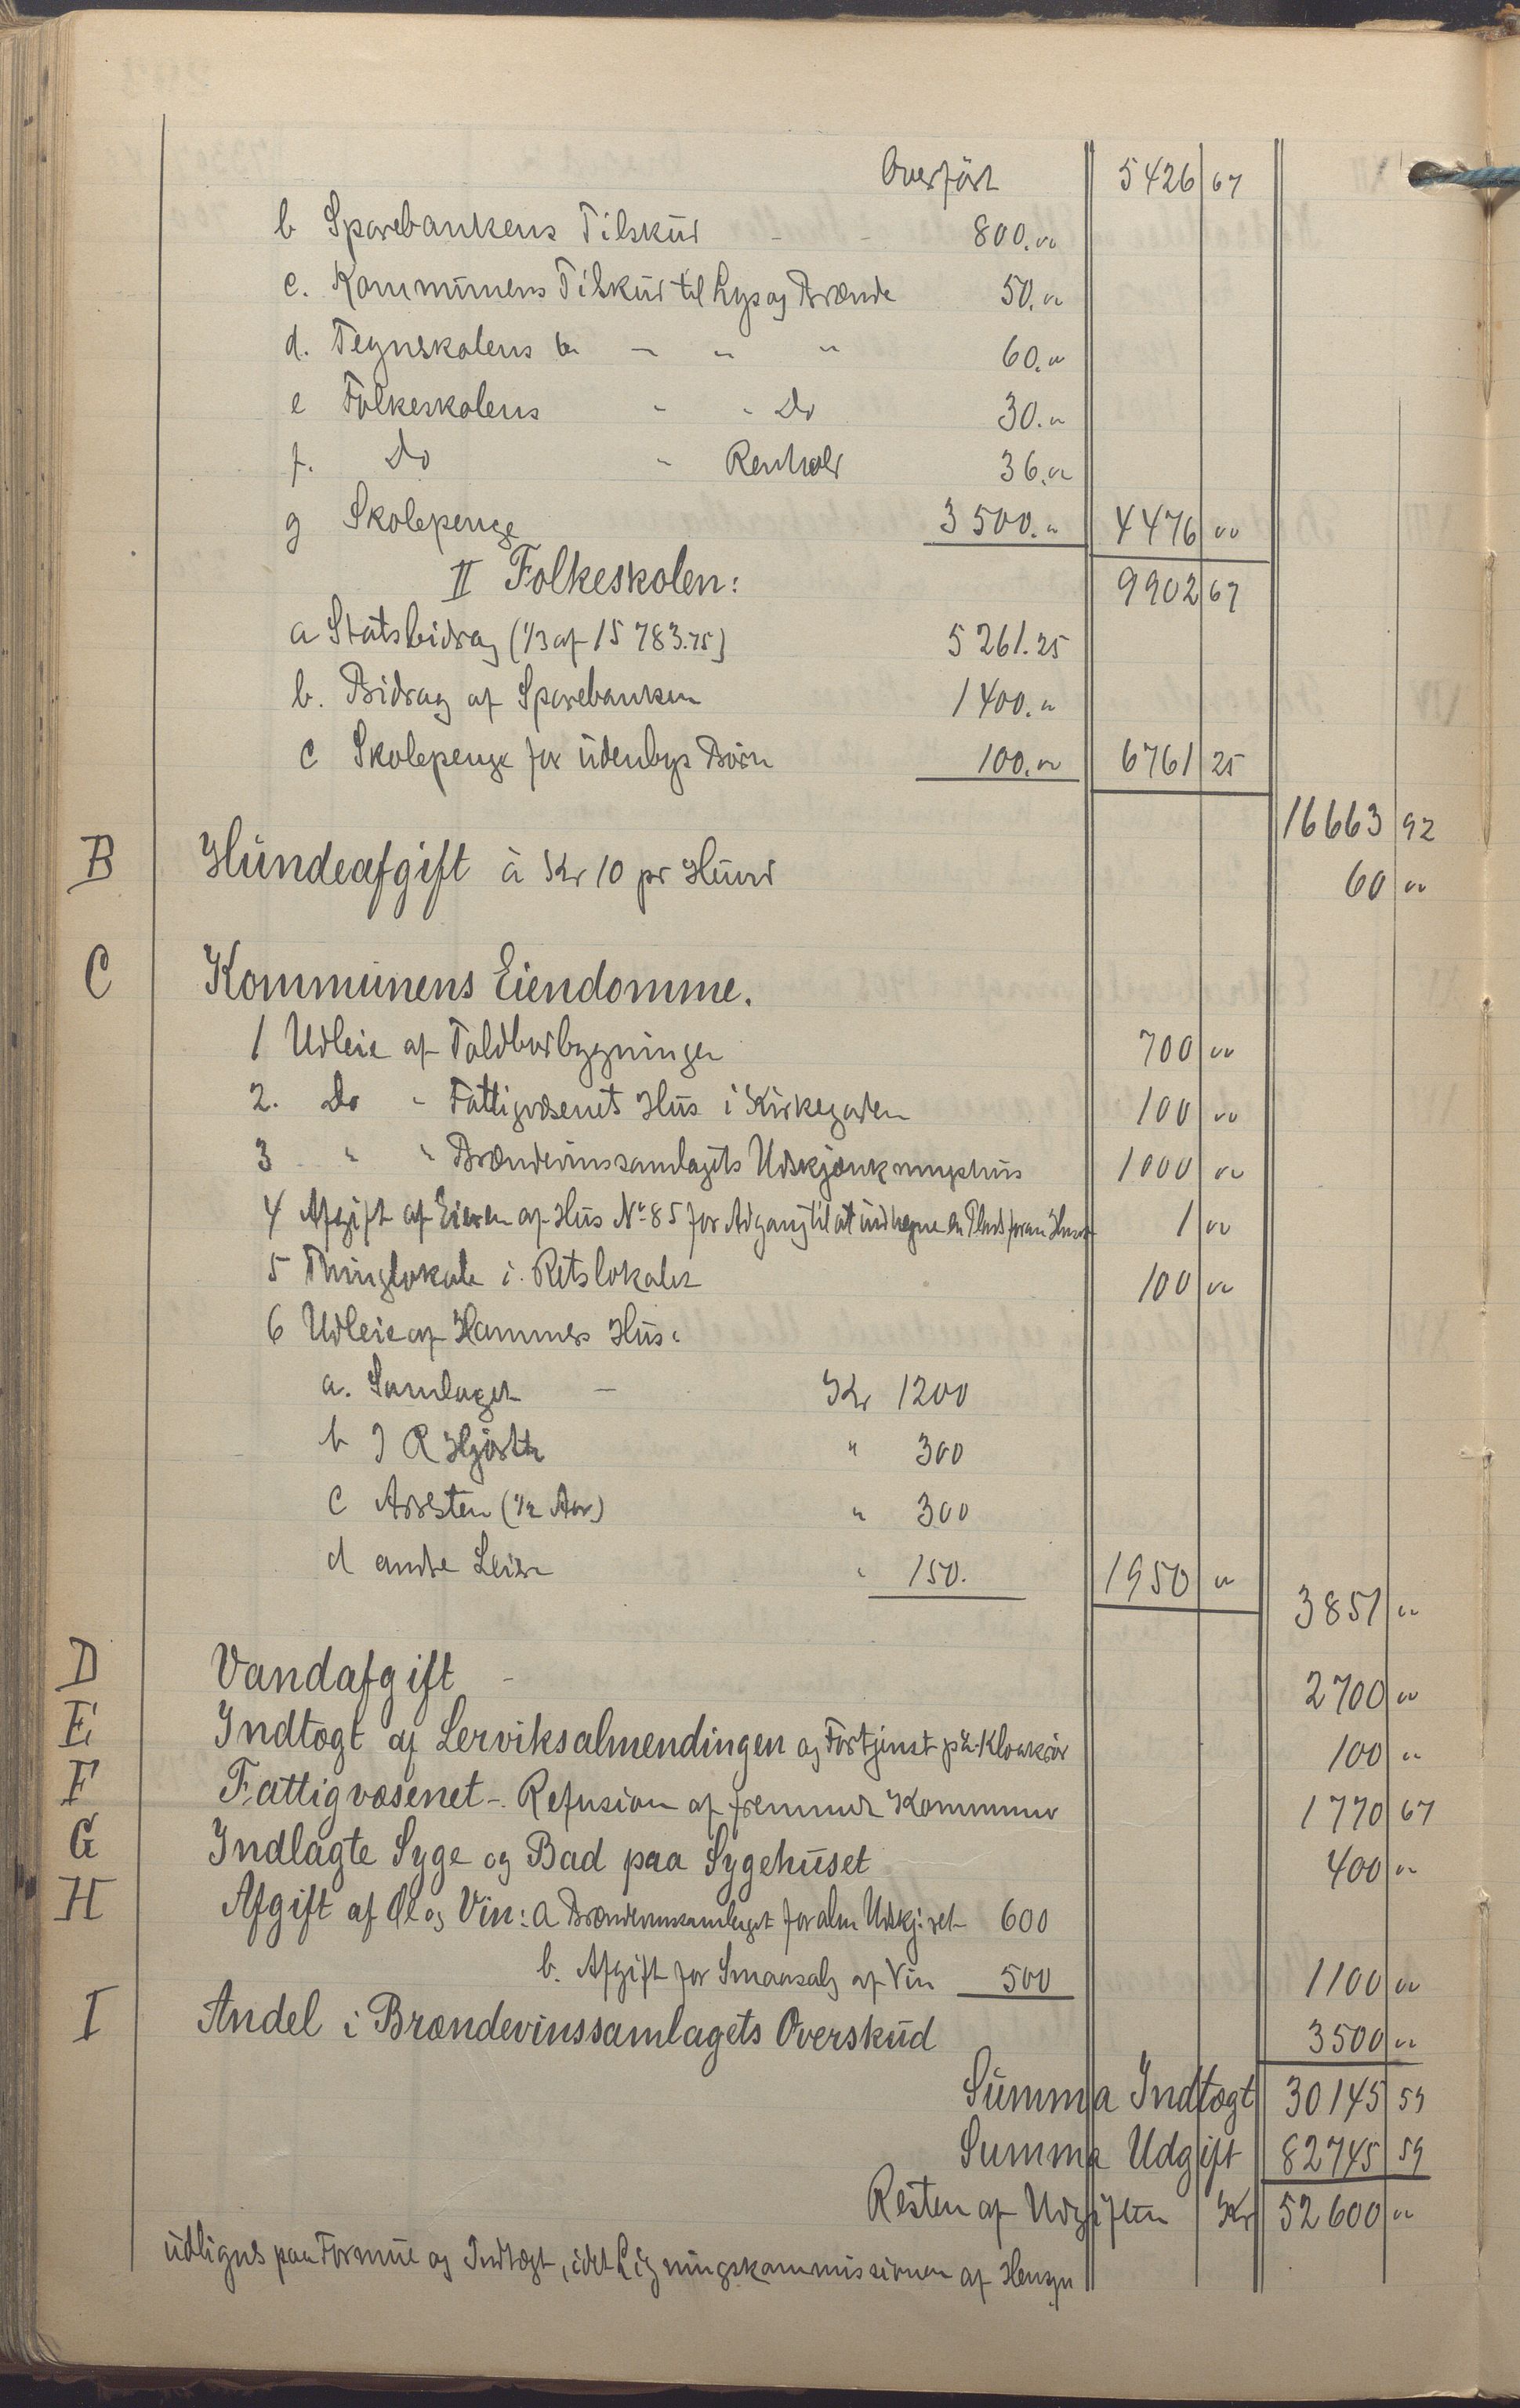 Overført 5426 67
b Sparebankens Tilskud - - 800."
c. Kommunens Tilskud til Lys og Brænde 50."
d. Tegneskolens - " " 60."
e Folkeskolens - " Do 30."
f. Do - Renhold 36."
g Skolepenge 3500." 4476 "
II Folkeskolen: 9902 67
a Statsbidrag (1/3 af 15 783.75) 5261.25
b. Bidrag af Sparebanken 1400."
c Skolepenge for udenbys Børn 100." 6761 25
16663 92
B Hundeafgift à Kr 10 pr Hund 60 "
C Kommunens Eiendomme.
1 Udleie af Toldbodbygningen 700 "
2. Do " Fattigvæsenets Hus i Kirkegaden 100 "
3 " " Brændevinssamlagets Udskjænkningshus 1000 "
4 Afgift af Eieren af Hus No 85 for Adgang til at indhegne en Plads foran Huset 1 "
5 Thinglokale i Retslokalet 100 "
6 Udleie af Hammers Hus:
a. Samlaget - Kr 1200
b J R Hjorth " 300
c Arresten (1/2 Aar) " 300
d andre Leiere " 150. 1950 "
3851 "
D Vandafgift - 2700 "
E Indtægt af Lerviksalmendingen og Fortjenst paa Kloakrør 100 "
F Fattigvæsenet - Refusion af fremmede Kommuner 1770 67
G Indlagte Syge og Bad paa Sygehuset 400 "
H Afgift af Øl og Vin: a Brændevinssamlaget for alm Udskj: ret 600
b. Afgift for Smaasalg af Vin 500 1100 "
I Andel i Brændevinssamlagets Overskud 3500 "
Summa Indtægt 30145 59
Summa Udgift 82745 59
Resten af Udgiften Kr 52600 "
udlignes paa Formue og Indtægt, idet Ligningskommissionen af Hensyn